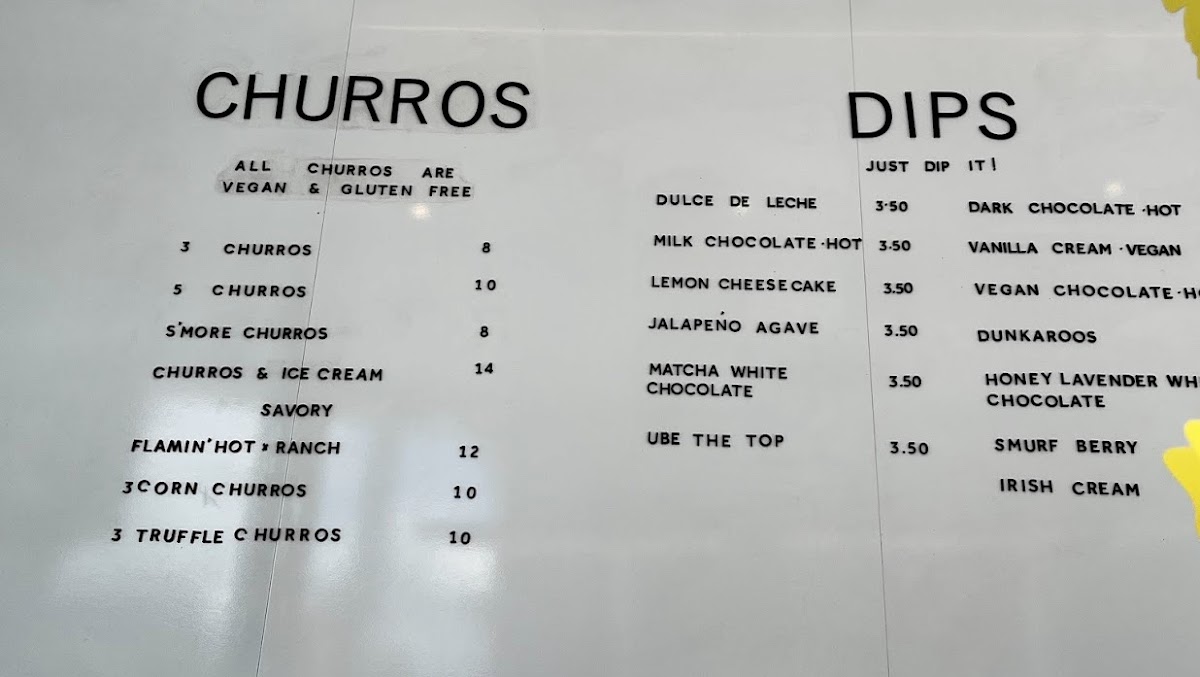 CHURROS
ALL CHURROS ARE
VEGAN & GLUTEN FREE
3 CHURROS 8
5 CHURROS 10
S'MORE CHURROS 8
CHURROS & ICE CREAM 14
SAVORY
FLAMIN' HOT x RANCH 12
3 CORN CHURROS 10
3 TRUFFLE CHURROS 10
DIPS
JUST DIP IT!
DULCE DE LECHE 3.50
MILK CHOCOLATE·HOT 3.50
LEMON CHEESECAKE 3.50
JALAPEÑO AGAVE 3.50
MATCHA WHITE
CHOCOLATE 3.50
UBE THE TOP 3.50
DARK CHOCOLATE·HOT
VANILLA CREAM·VEGAN
VEGAN CHOCOLATE
DUNKAROOS
HONEY LAVENDER
CHOCOLATE
SMURF BERRY
IRISH CREAM